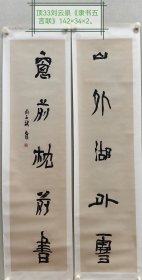 顶33刘云泉《隶书五
言联》142×34×2。
山外湖外云
窗前枕前书